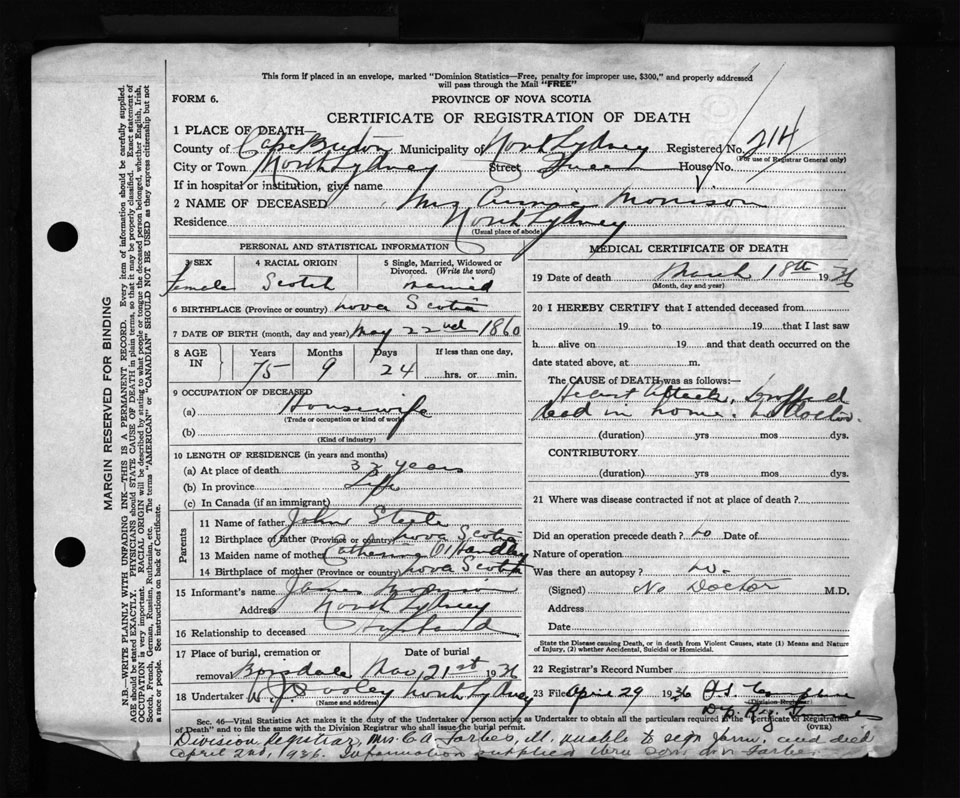 This form if placed in an envelope, marked "Dominion Statistics—Free, penalty for improper use, $300," and properly addressed
will pass through the Mail "FREE"
FORM 6.
PROVINCE OF NOVA SCOTIA
CERTIFICATE OF REGISTRATION OF DEATH
1 PLACE OF DEATH—
County of Cape Breton Municipality of North Sydney Registered No. 214
(For use of Registrar General only)
City or Town North Sydney Street Queen House No.
If in hospital or institution, give name
2 NAME OF DECEASED Mrs Annie Morrison
Residence North Sydney
(Usual place of abode)
PERSONAL AND STATISTICAL INFORMATION
3 SEX 4 RACIAL ORIGIN 5 Single, Married, Widowed or
Divorced. (Write the word)
female Scotch married
6 BIRTHPLACE (Province or country) Nova Scotia
7 DATE OF BIRTH (month, day and year) May 22nd 1860
8 AGE IN Years Months Days If less than one day,
75 9 24 hrs. or min.
9 OCCUPATION OF DECEASED
(a) Housewife
(Trade or occupation or kind of work)
(b)
(Kind of industry)
10 LENGTH OF RESIDENCE (in years and months)
(a) At place of death years
(b) In province Life
(c) In Canada (if an immigrant)
Parents
11 Name of father John Steele
12 Birthplace of father (Province or country) Nova Scotia
13 Maiden name of mother Catherine O'Handley
14 Birthplace of mother (Province or country) Nova Scotia
15 Informant's name James Morrison
Address North Sydney
16 Relationship to deceased Husband
17 Place of burial, cremation or Date of burial
removal Boisdale 21st 1936
18 Undertaker W. J. Dooley North Sydney
(Name and address)
MEDICAL CERTIFICATE OF DEATH
19 Date of death March 18th 1936
(Month, day and year)
20 I HEREBY CERTIFY that I attended deceased from
19 to 19 that I last saw
h alive on 19 and that death occurred on the
date stated above, at m.
The CAUSE of DEATH was as follows:—
Heart Attack, found
dead in home. no doctor
(duration) yrs mos dys.
CONTRIBUTORY
(duration) yrs mos dys.
21 Where was disease contracted if not at place of death?
Did an operation precede death? no Date of
Nature of operation
Was there an autopsy? no.
(Signed) No Doctor M.D.
Address
Date
State the Disease causing Death, or in death from Violent Causes, state (1) Means and Nature
of Injury, (2) whether Accidental, Suicidal or Homicidal.
22 Registrar's Record Number
23 File April 29 1936
(Division Registrar)
Sec. 46—Vital Statistics Act makes it the duty of the Undertaker or person acting as Undertaker to obtain all the particulars required in the Certificate of Registration
of Death" and to file the same with the Division Registrar who shall issue the burial permit. (OVER)
Division Registrar, Mrs C A Forbes, ill. unable to sign form, and died
April 2nd, 1936. Information supplied thru son
MARGIN RESERVED FOR BINDING
N.B.—WRITE PLAINLY WITH UNFADING INK—THIS IS A PERMANENT RECORD. Every item of information should be carefully supplied.
AGE should be stated EXACTLY. PHYSICIANS should STATE CAUSE OF DEATH in plain terms, so that it may be properly classified. Exact statement of
OCCUPATION is very important. RACIAL ORIGIN will be described by stating to what people or tongue the deceased person belonged, whether English, Irish,
Scotch, French, German, Russian, Ruthenian, etc. The terms "AMERICAN" or "CANADIAN" SHOULD NOT BE USED as they express citizenship but not
a race or people. See instructions on back of Certificate.